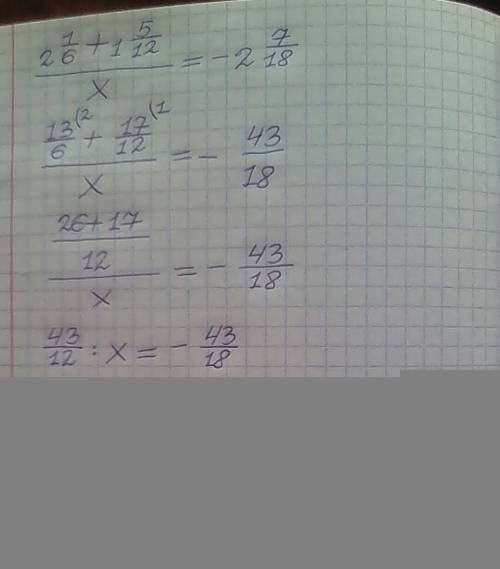 (2 1/6 + 1 5/12)/x = -2 7/18
(13/6 (2 + 17/12 (1)/x = - 43/18
((26+17)/12)/x = - 43/18
43/12 : x = - 43/18